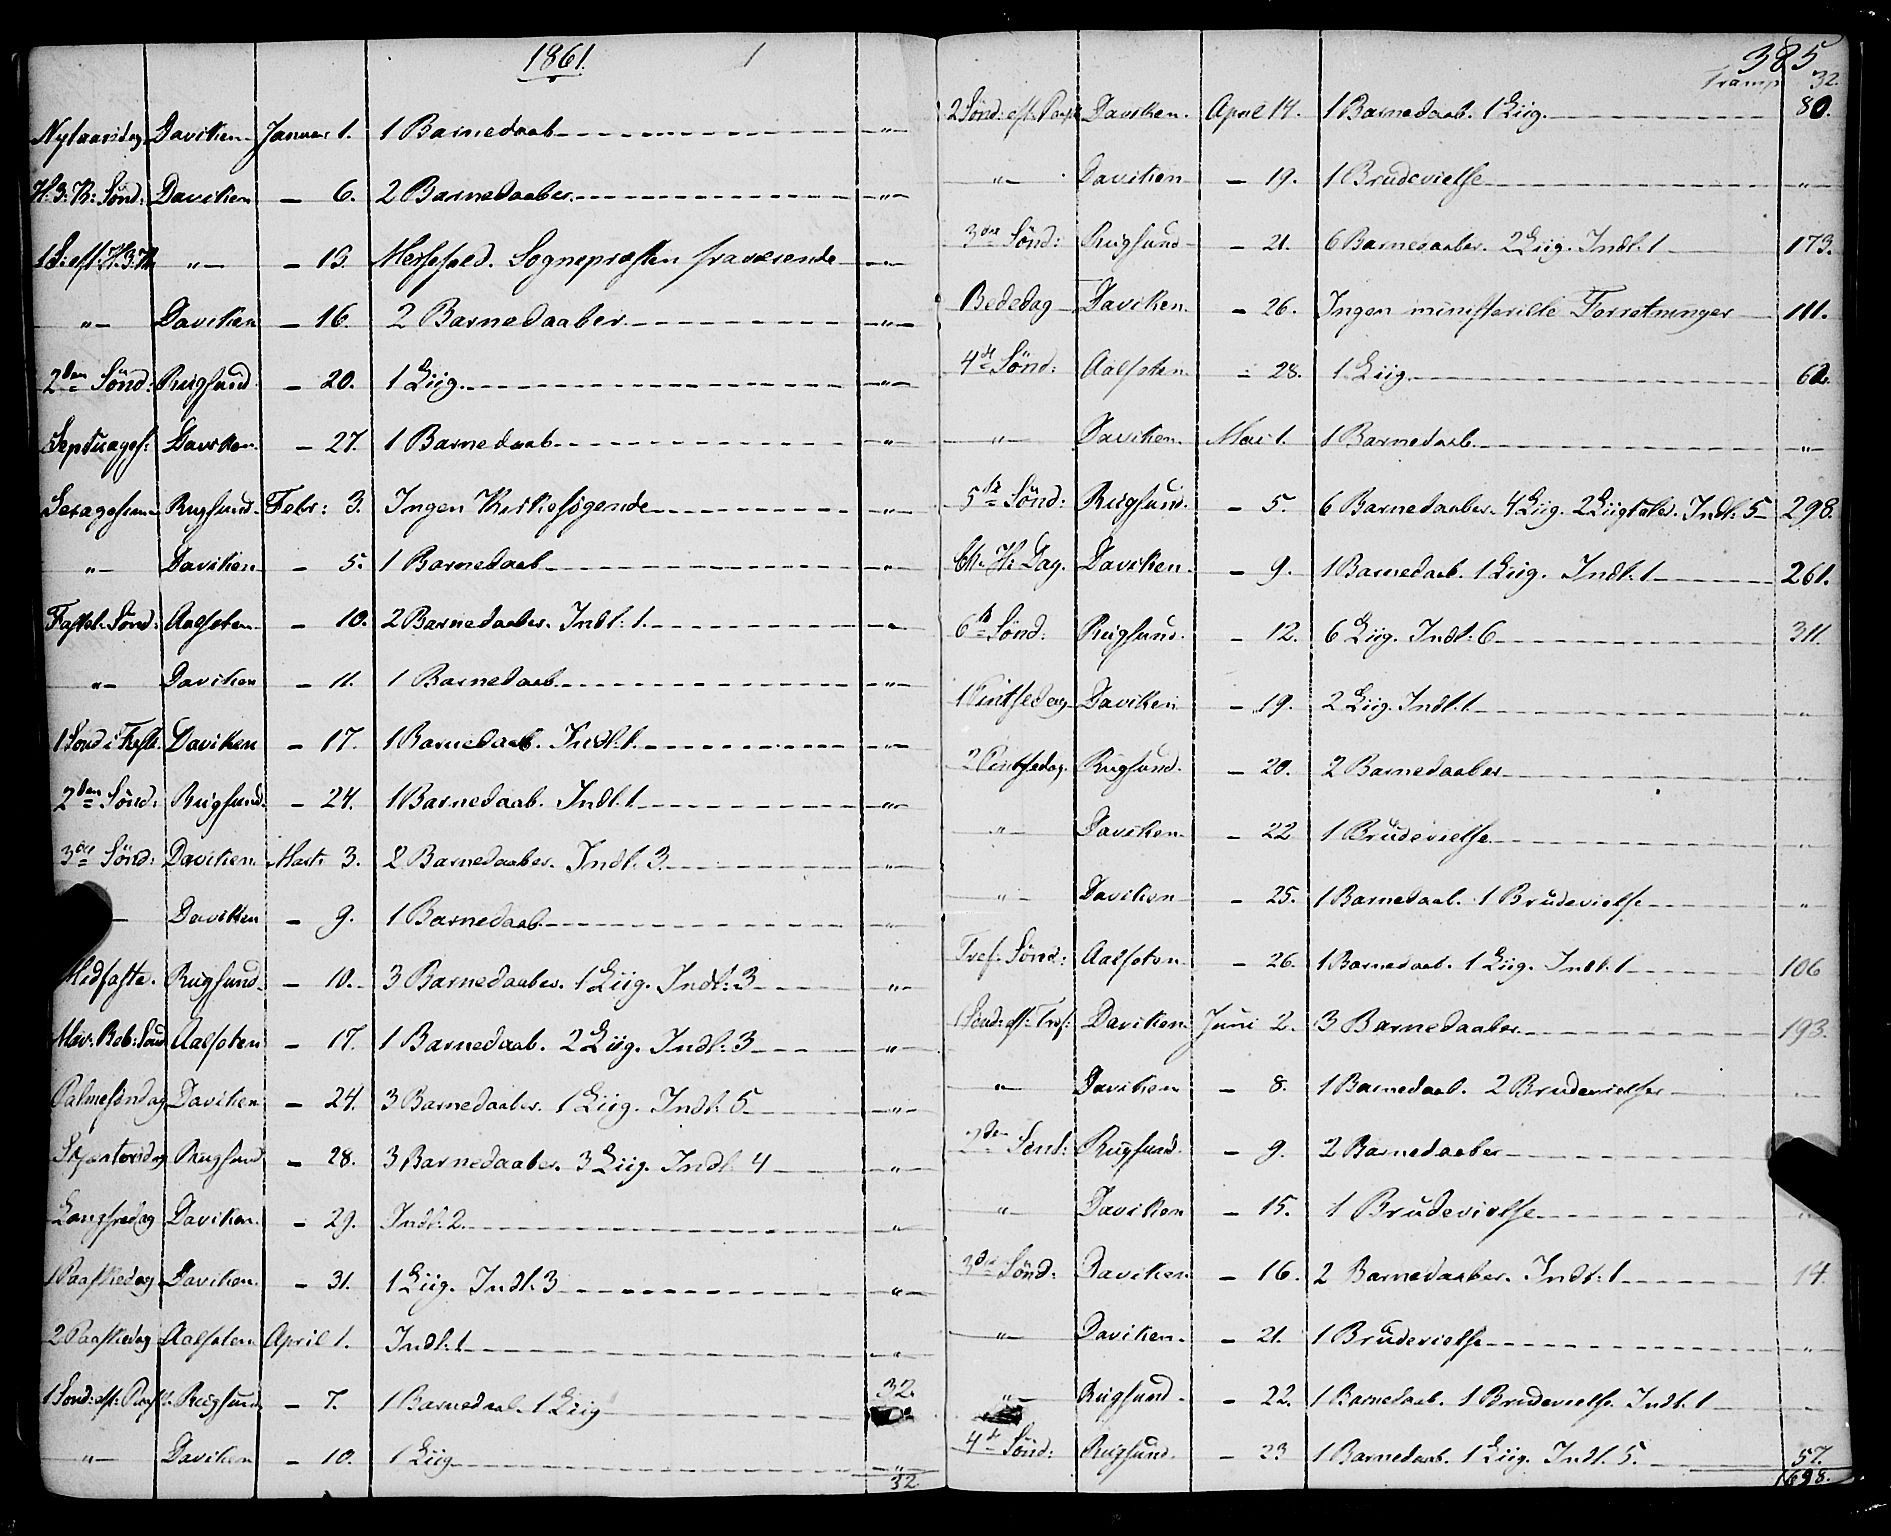 1861.
Nytaarsdag Daviken Januar 1. 1 Barnedaab „
H. 3. K: Sønd: Daviken – 6. 2 Barnedaaber „
1 S: eft: H. 3. K. „ – 13. Messefald. Sognepræsten fraværende „
„ Daviken – 16. 2 Barnedaaber „
2den Sønd: Rugsund – 20. 1 Liig. „
Septuages: Daviken – 27. 1 Barnedaab „
Sexagesima Rugsund Febr: 3. Ingen Kirkesøgende „
„ Daviken – 5. 1 Barnedaab „
Fastel. Sønd: Aalfoten – 10. 2 Barnedaaber. Indl: 1. „
„ Daviken – 11. 1 Barnedaab „
1 Sønd i Faste Daviken – 17. 1 Barnedaab. Indl: 1. „
2den Sønd: Rugsund. – 24. 1 Barnedaab. Indl: 1 „
3die Sønd: Daviken. Marts 3. 2 Barnedaaber. Indl: 3. „
– Daviken – 9. 1 Barnedaab „
Midfaste. Rugsund – 10. 3 Barnedaaber. 1 Liig. Indl: 3 „
Mar. Beb: Sønd Aalfoten – 17. 1 Barnedaab. 2 Liig. Indl: 3 „
Palmesøndag Daviken – 24. 3 Barnedaaber. 1 Liig. Indl: 5 „
Skjærtorsdag Rugsund – 28. 3 Barnedaaber. 3 Liig. Indl: 4 „
Langfredag Daviken. – 29. Indl: 2. „
1 Paaskedag Daviken. – 31. 1 Liig. Indl: 3 „
2 Paaskedag Aalfoten April 1. Indl: 1 „
1 Sønd: eft: Paask. Rugsund – 7. 1 Barnedaab. 1 Liig 32.
„ Daviken – 10. 1 Liig „
32
385
Transp 32.
2 Sønd: eft. Paask Daviken. April 14. 1 Barnedaab. 1 Liig. 80.
„ Daviken – 19. 1 Brudevielse „
3die Sønd: Rugsund – 21. 6 Barnedaaber. 2 Liig. Indl: 1 173.
Bededag Daviken. – 26. Ingen ministerielle Forretninger 111.
4de Sønd: Aalfoten – 28. 1 Liig.
„ Daviken. Mai 1. 1 Barnedaab „
5te Sønd: Rugsund. – 5. 6 Barnedaaber. 4 Liig. 2 Liigtaler. Indl: 5 298.
Ch. H. Dag. Daviken. – 9. 1 Barnedaab. 1 Liig. Indl: 1 261.
6te Sønd: Rugsund. – 12. 6 Liig. Indl: 6 311.
1 Pintsedag Daviken – 19. 2 Liig. Indl: 1 „
2 Pintsedag. Rugsund. – 20. 2 Barnedaaber „
„ Daviken. – 22 1 Brudevielse „
„ Daviken – 25. 1 Barnedaab. 1 Brudevielse „
Tref. Sønd: Aalfoten – 26. 1 Barnedaab. 1 Liig. Indl: 1 106
1 Sønd: eft: Tref: Daviken. Juni 2. 3 Barnedaaber 193.
„ Daviken – 8. 1 Barnedaab. 2 Brudevielser „
2den Sønd: Rugsund. – 9. 2 Barnedaaber
„ Daviken – 15. 1 Brudevielse „
3die Sønd: Daviken – 16. 2 Barnedaaber. Indl: 1 14.
„ Daviken. – 21. 1 Brudevielse „
„ Rugsund. – 22. 1 Barnedaab. 1 Brudevielse. Indl: 1 „
4de Sønd: Rugsund. – 23 1 Barnedaab. 1 Liig. Indl: 5. 57.
1698.